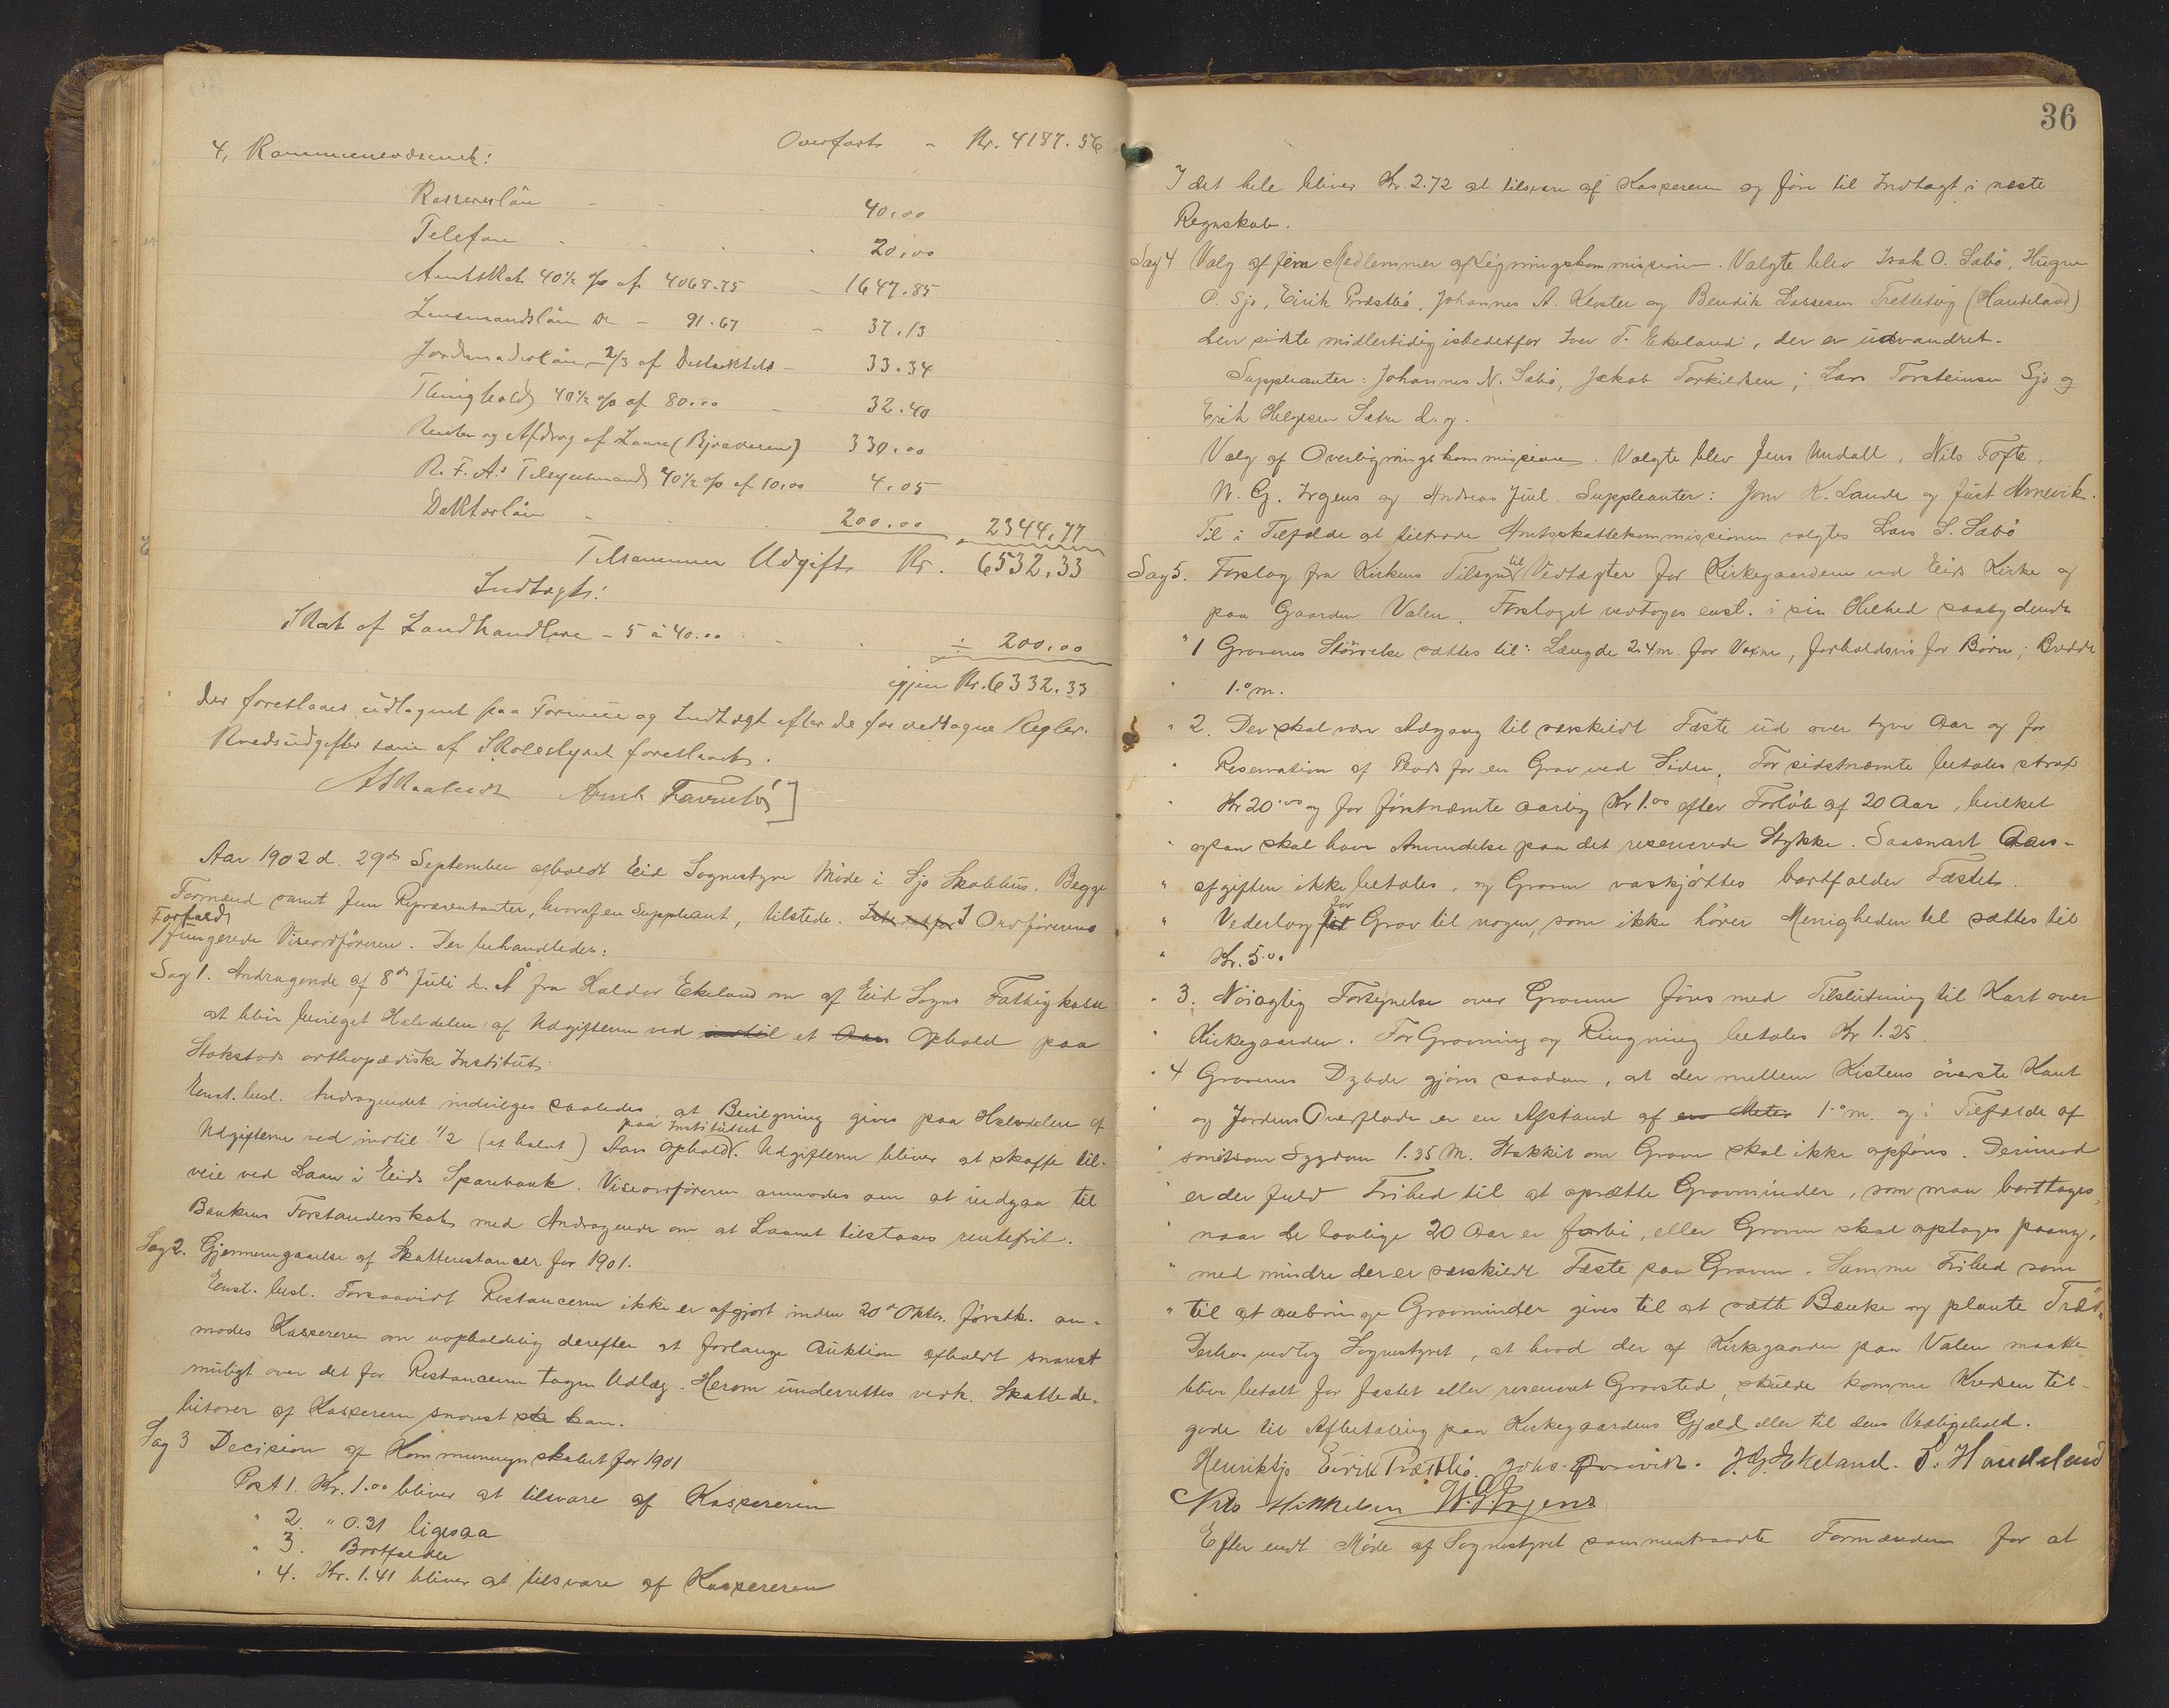 4, Kommunevæsenet: Overført - Kr. 4187.56
Kassererløn - - - 40.00
Telefon - - - 20.00
Amtskat 40½ % af 4068.75 - 1647.85
Lensmandsløn Do - 91.67 - 37.13
Jordmoderløn, 2/3 af Distriktets - 33.34
Thinghold 40½ % af 80.00 - 32.40
Renter og Afdrag af Laan (Bjoaveien) 330.00
R. F. A.s Tilsynsmand 40½ % af 10.00 4.05
Doktorløn - - 200.00 2344,77
Tilsammen Udgift Kr. 6532,33
Indtægt:
Skat af Landhandlere - 5 à 40.00 - ÷ 200.00
igjen Kr. 6332.33
Der foreslaaes udlagnet paa Formue og Indtægt efter de før vedtagne Regler.
Kredsudgifter som af Skolestyret foreslaaet.
Aar 1902 d. 29de September afholdt Eid Sognestyre Møde i Sjo Skolehus. Begge
Formænd samt fem Repræsentanter, hvoraf en Suppleant, tilstede. I Ordførerens
Forfald fungerede Viseordføreren. Der behandledes:
Sag 1. Andragende af 8de Juli d. A. fra Haldor Ekeland om af Eid Sogns Fattigkasse
at blive bevilget Halvdelen af Udgifterne ved indtil et Aars Ophold paa
Stokstads orthopædiske Institut.
Enst. besl. Andragendet indvilges saaledes, at Bevilgning gives paa Halvdelen af
Udgifterne ved indtil ½ (et halvt) Aars Ophold paa Institüttet. Udgifterne bliver at skaffe til-
veie ved Laan i Eids Sparebank. Viseordføreren anmodes om at indgaa til
Bankens Forstanderskab med Andragende om at Laanet tilstaaes rentefrit.
Sag 2. Gjennemgaaelse af Skatterestancer for 1901.
Enst. besl. Forsaavidt Restancerne ikke er afgjort inden 20de Oktbr. førstk. an-
modes Kassereren om uopholdelig derefter at forlange Auktion afholdt snarest
muligt over det for Restancerne tagne Udlæg. Herom underrettes vedk. Skattede-
bitorer af Kassereren snarest ske kan.
Sag 3 Decision af Kommuneregnskabet for 1901
Post 1. Kr. 1.00 bliver at tilsvare af Kassereren
" 2. " 0.31 ligesaa
" 3. Bortfalder
" 4. Kr. 1.41 bliver at tilsvare af Kassereren
36
I det hele bliver Kr. 2.72 at tilsvare af Kassereren og føre til Indtægt i næste
Regnskab.
Sag 4 Valg af fem Medlemmer af Ligningskommissionen. Valgte blev Isak O. Sæbø, Hågen
O. Sjo, Eirik Præstbø, Johannes A. Kloster og Bendik Larsen Trettetvig (Haudeland)
den sidste midlertidig istedetfor Iver T. Ekeland, der er udvandret.
Suppleanter: Johannes N. Sæbø, Jakob Torkildsen, Lars Torsteinsen Sjo og
Erik Helgesen Sætre d. y.
Valg af Overligningskommission. Valgte blev Jens Undall, Nils Tofte,
W. G. Irgens og Andreas Juul. Suppleanter: Jon K. Lande og Just Arnevik.
Til i Tilfælde at tiltræde Amtsskattekommissionen valgtes Lars S. Sæbø
Sag 5. Forslag fra Kirkens Tilsyn til Vedtægter for Kirkegaardene ved Eids Kirke og
paa Gaarden Valen. Forslaget vedtoges enst. i sin Helhed saalydende
" 1 Gravenes Størrelse sættes til: Længde 2.4 m. for Voxne, forholdsvis for Børn; Bredde
" 1.0 m.
" 2. Der skal være Adgang til særskildt Fæste ud over tyve Aar og for
" Reservation af Plads for en Grav ved Siden. For sidstnævnte betales strax
" Kr 20.00 og for førstnævnte aarlig Kr 1.00 efter Forløb af 20 Aar, hvilket
" ogsaa skal have Anvendelse paa det reserverede Stykke. Saasnart Aars-
" afgiften ikke betales, og Graven vaskjøttes bortfalder Fæstet.
" Vederlag for Grav til nogen, som ikke hører Menigheden til sættes til
" Kr. 5.00
" 3. Nøiagtig Fortegnelse over Gravene føres med Tilslutning til Kart over
" Kirkegaarden. For Gravning og Ringning betales Kr 1.25.
" 4 Gravenes Dybde gjøres saadan, at der mellem Kistens øverste Kant
" og Jordens Overflade er en Afstand af en Meter 1.0 m. og i Tilfælde af
" smitsom Sygdom 1.35 M. Stakkit om Grave skal ikke opføres. Derimod
" er der fuld Frihed til at opsætte Gravminder, som man borttages,
" naar de lovlige 20 Aar er forbi, eller Graven skal optages paany,
" med mindre der er særskildt Fæste paa Graven. Samme Frihed som
" til at anbringe Gravminder gives til at sætte Bænke og plante Trær.
Derhos vedtog Sognestyret, at hvad der af Kirkegaarden paa Valen maatte
blive betalt for fæstet eller reserveret Gravsted, skulde komme Kredsen til-
gode til Afbetaling paa Kirkegaardens Gjæld eller til dens Vedligehold.
Henrik Sjo Eirik Præstbø. Johs. Arnevik. J. G. Ekeland. S. Haudeland
Nils Mikkelsen W. G. Irgens
Efter endt Møde af Sognestyret sammentraadte Formændene for at